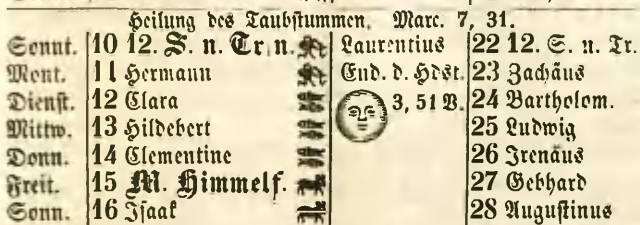 Heilung des Taubstummen. Marc. 7, 31.
Sonnt. 10 12. S. n. Tr. n. Laurentius 22 12. S. n. Tr.
Mont. 11 Hermann End. d. Hdst. 23 Zachäus
Dienst. 12 Clara 3, 51 V. 24 Bartholom.
Mittw. 13 Hildebert 25 Ludwig
Donn. 14 Clementine 26 Irenäus
Freit. 15 M. Himmelf. 27 Gebhard
Sonn. 16 Isaak 28 Augustinus